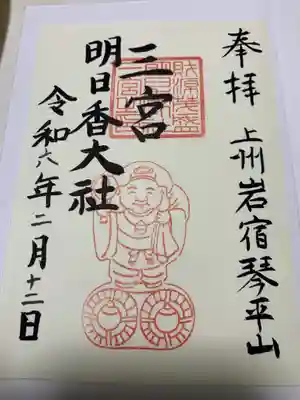 奉拝
上州岩宿琴平山
三宮
明日香大社
令和六年二月十二日